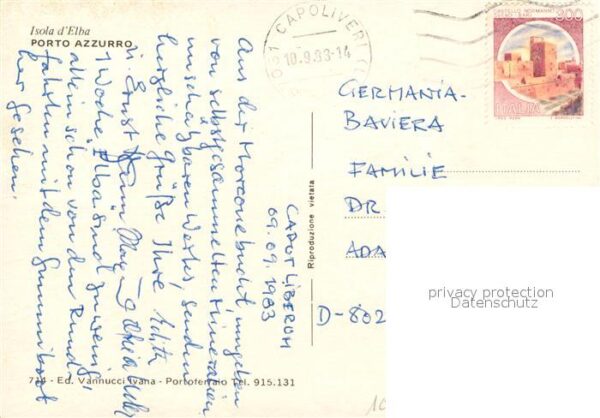 Isola d'Elba
PORTO AZZURRO
CAPOLIVERI
10.9.83-14
CASTELLO NORMANNO
300
ITALIA
GERMANIA-
BAVIERA
FAMILIE
DR.
ADA
D-802
CAPOT LIBERUM
09.09.1983
Aus der Morconebucht, umgeben
von selbstgesammelten Mineralien
unschätzbaren Wertes, senden
herzliche Grüße Ihre Edith
u. Ernst
1 Woche Elba sind zu wenig,
allein schon von den Rund-
fahrten mit dem Gummiboot
her gesehen.
Riproduzione vietata
privacy protection
Datenschutz
714 - Ed. Vannucci Ivana - Portoferraio Tel. 915.131